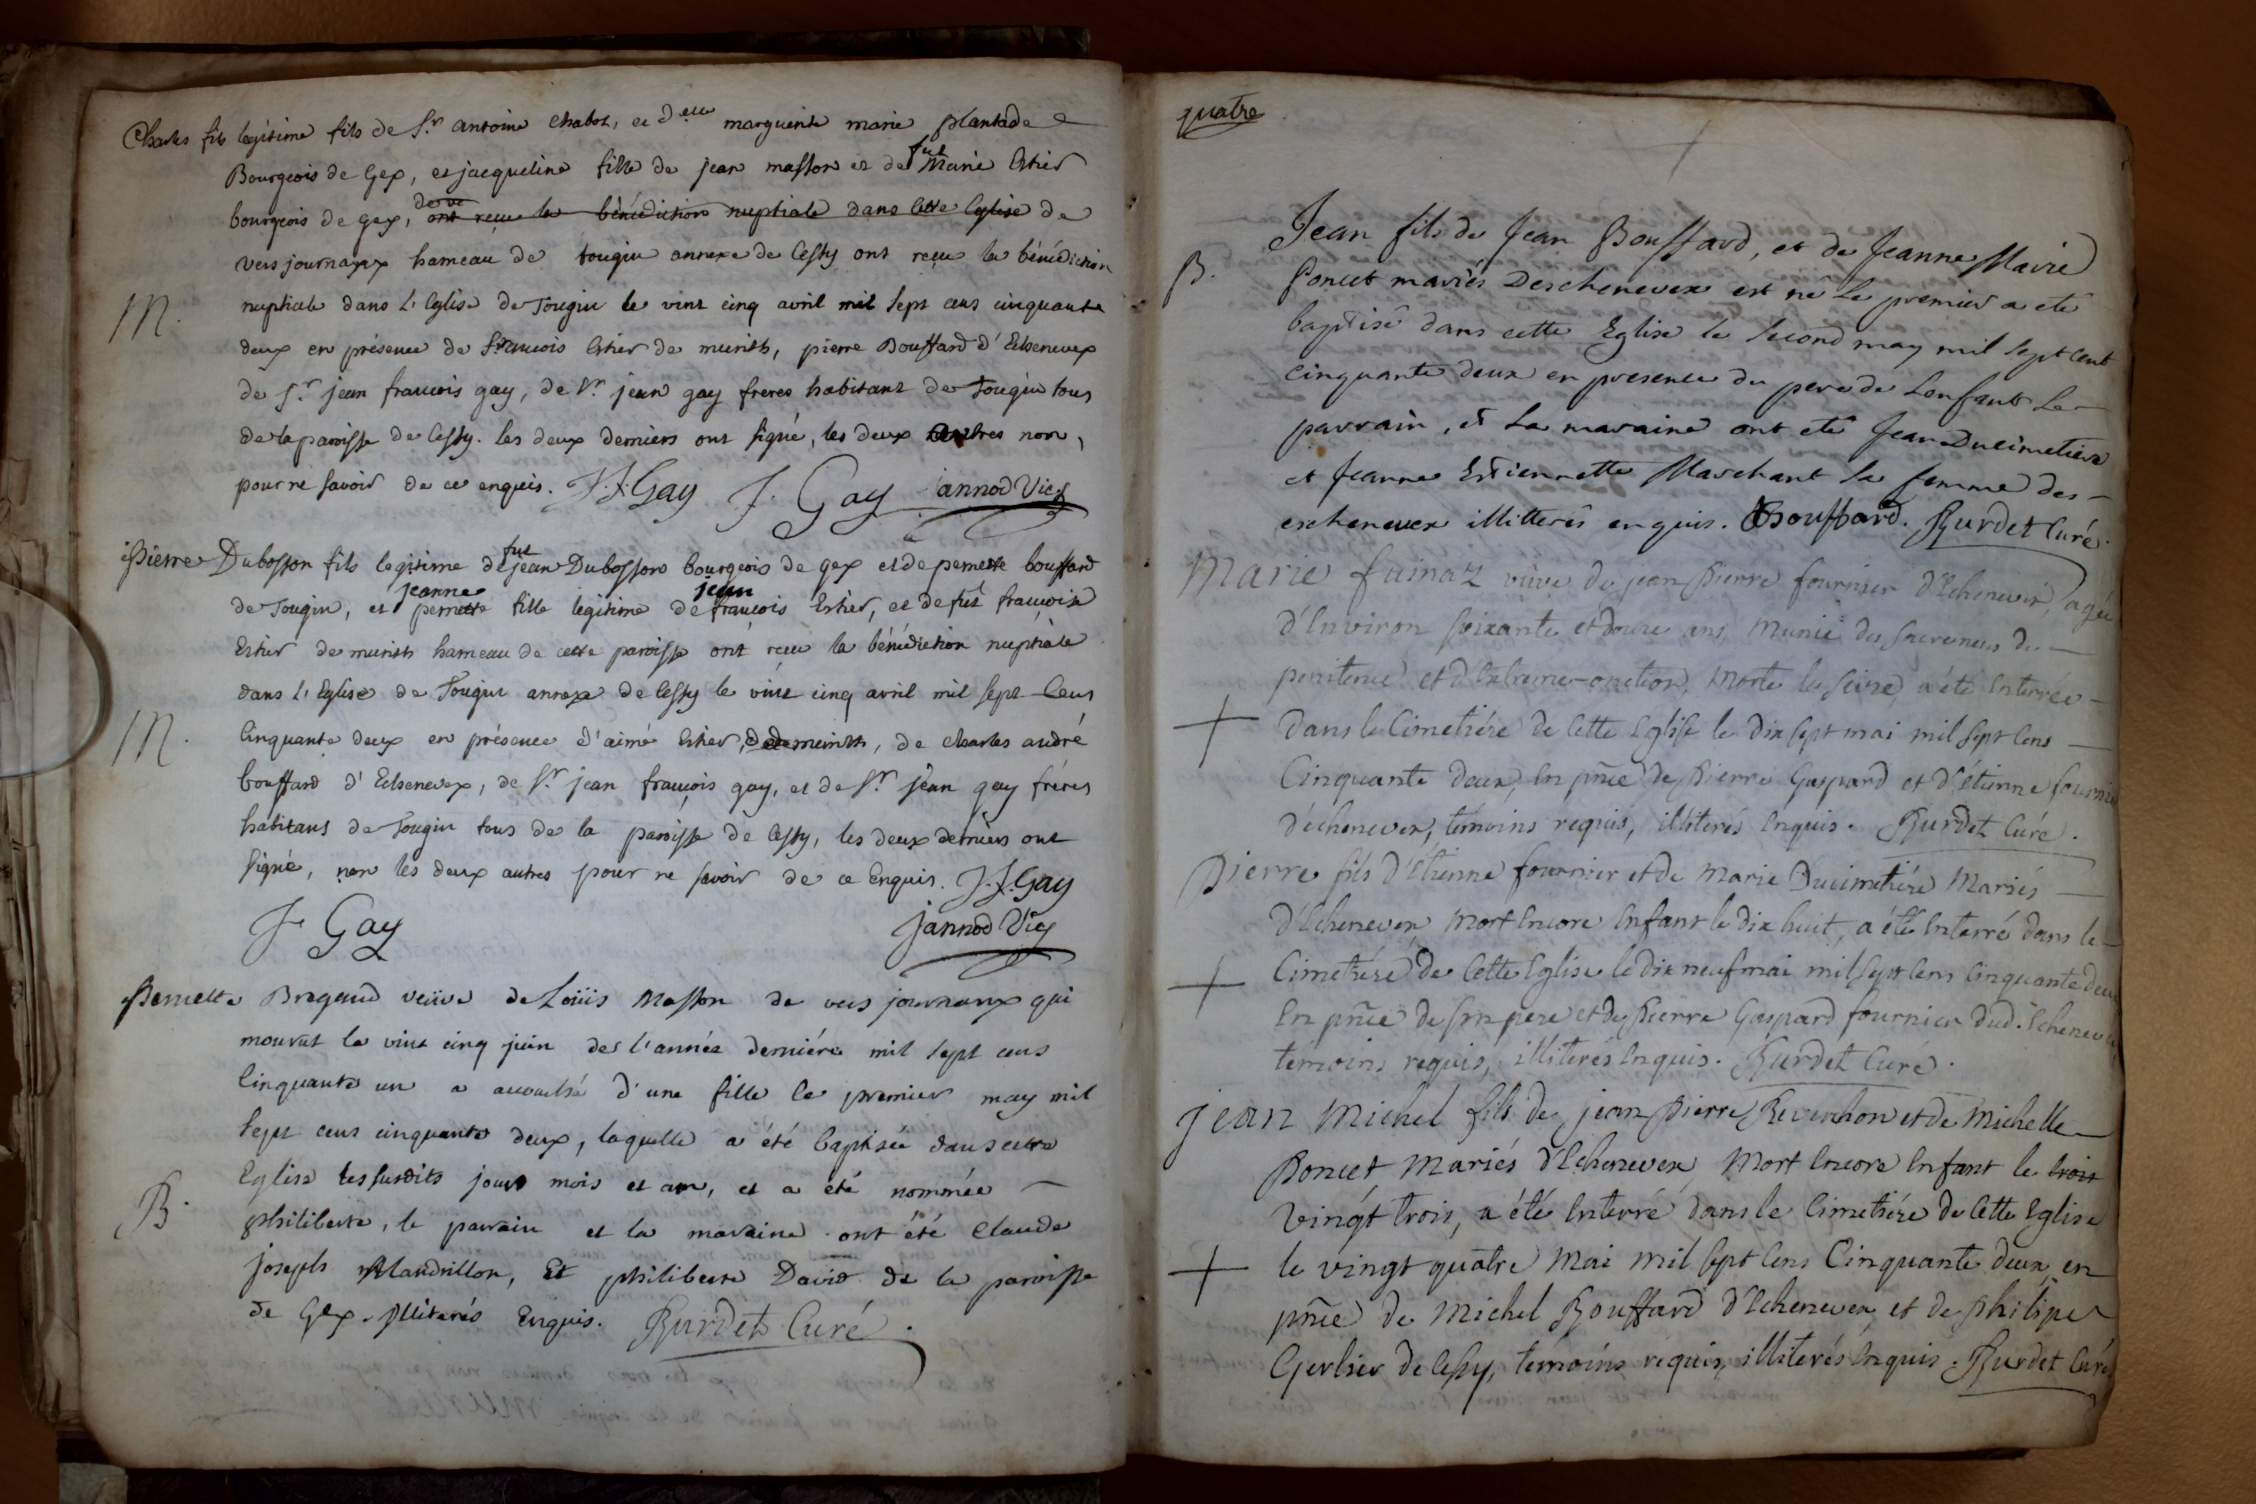 Charles fils legitime fils de Sr antoine chabot, et delle marguerite marie plantade
Bourgeois de Gex, et jacqueline fille de jean masson et de fut Marie Estier
bourgeois de gex, ont reçu la bénédiction nuptiale dans cette Eglise de
vers journaxx hameau de tougin annexe de Cessy ont reçu la bénédiction
M.
nuptiale dans L'Eglise de Tougin le vint cinq avril mil sept cens cinquante
deux en présence de francois Estier de murith, pierre Bouffard d'Echenevex
de Sr jean francois gay, de Sr jean gay freres habitant de Tougin tous
de la paroisse de Cessy. les deux derniers ont signé, les deux autres non,
pour ne savoir de ce enquis. J.f. Gay J. Gay jannod Vic
Pierre Dubosson fils legitime de fut jean Dubosson bourgeois de gex et de pernette bouffard
de Tougin, et pernette jeanne fille legitime de françois jean Estier, et de fut françoise
Estier de murith hameau de cette paroisse ont recu la bénédiction nuptiale
dans L'Eglise de Tougin annexe de Cessy le vint cinq avril mil sept Cens
M.
Cinquante deux en présence d'aimé Estier, de murith, de charles andré
bouffard d'Echenevex, de Sr jean françois gay, et de Sr jean gay fréres
habitans de Tougin tous de la paroisse de Cessy, les deux derniers ont
signé, non les deux autres pour ne savoir de ce Enquis. J.f. Gay
J Gay jannod Vic
Pernette Bregand veüve de Loüis Masson de vers journaux qui
mourut le vint cinq juin de l'année derniére mil sept cens
Cinquante un a accouché d'une fille le premier may mil
sept cens cinquante deux, laquelle a été baptisée dans cette
Eglise les susdits jour mois et an, et a été nommée
B.
philiberte, le parrain et la maraine ont été Claude
joseph Mandrillon, Et philiberte David de la paroisse
de Gex. Illiterés Enquis. Burdet Curé.
quatre
Jean fils de Jean Bouffard, et de Jeanne Marie
B.
Poncet mariés Deschenevex est né le premier a eté
baptisé dans cette Eglise le second may mil sept cent
cinquante deux en presence du pere de Lenfant Le
parrain, et La maraine ont eté Jean Ducimetiere
et Jeanne Estiennette Marchant sa femme des
eschenevex illitterés enquis. Bouffard. Burdet Curé.
Marie fumaz vüve de jean Pierre fournier d'Echenevex, agée
d'Environ soixante et douze ans, Munie des sacremens de
penitence et d'Extreme-onction, Morte le seize, a été Enterrée
dans le Cimetiére de Cette Eglise le dix sept mai mil sept Cens
Cinquante deux, En pñce de Pierre Gaspard et d'étienne fournier
d'échenevex, temoins requis, illiterés Enquis. Burdet Curé.
Pierre fils d'Etienne fournier et de Marie Ducimetiére Mariés
d'Echenevex, Mort Encore Enfant le dix huit, a été Enterré dans le
Cimetiére de Cette Eglise le dix neuf mai mil sept Cens Cinquante deux
En pñce de son pere et de Pierre Gaspard fournier dud. Echenevex
témoins requis, illiterés Enquis. Burdet Curé.
jean Michel fils de jean Pierre Reverchon et de Michelle
Poncet, Mariés d'Echenevex, Mort Encore Enfant le trois
Vingt trois, a été Enterré dans le Cimetiére de Cette Eglise
le vingt quatre Mai mil sept Cens Cinquante deux en
pñce de Michel Bouffard d'Echenevex, et de philipe
Gerlier de Cessy, temoins requis, illiterés Enquis. Burdet Curé